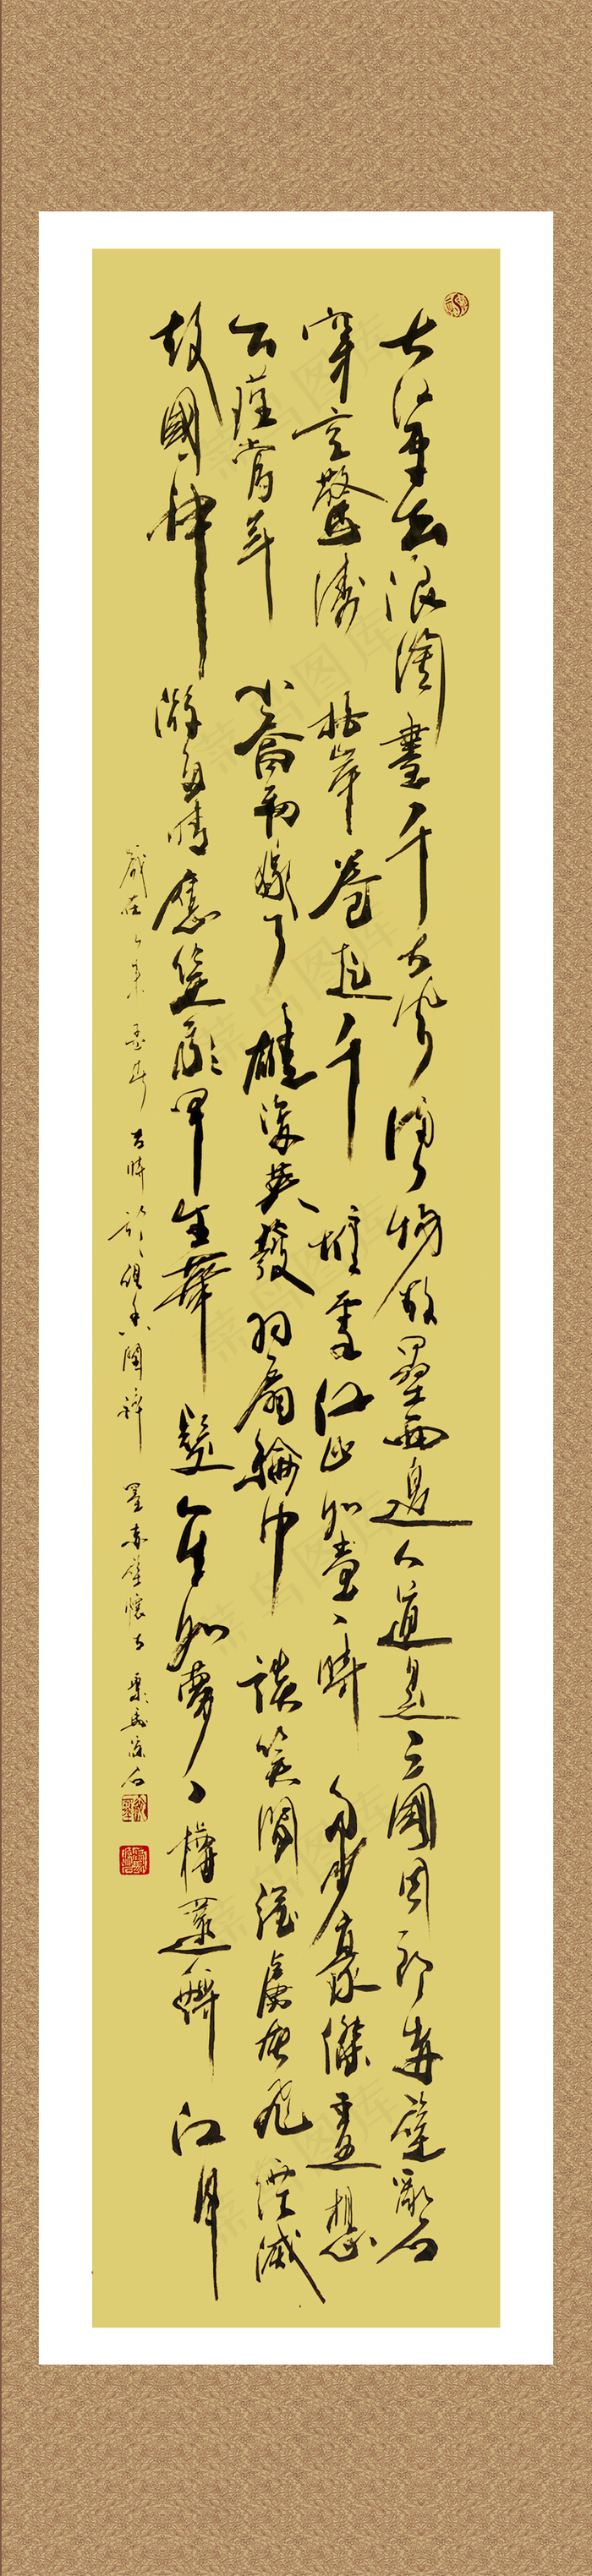 大江東去浪淘盡千古風流人物故壘西邊人道是三國周郎赤壁亂石
穿空驚濤拍岸卷起千堆雪江山如畫一時多少豪傑遙想
公瑾當年小喬初嫁了雄姿英發羽扇綸巾談笑間強虜灰飛煙滅
故國神遊多情應笑我早生華髮人生如夢一樽還酹江月
歲在乙未赤壁懷古
菜鸟图库